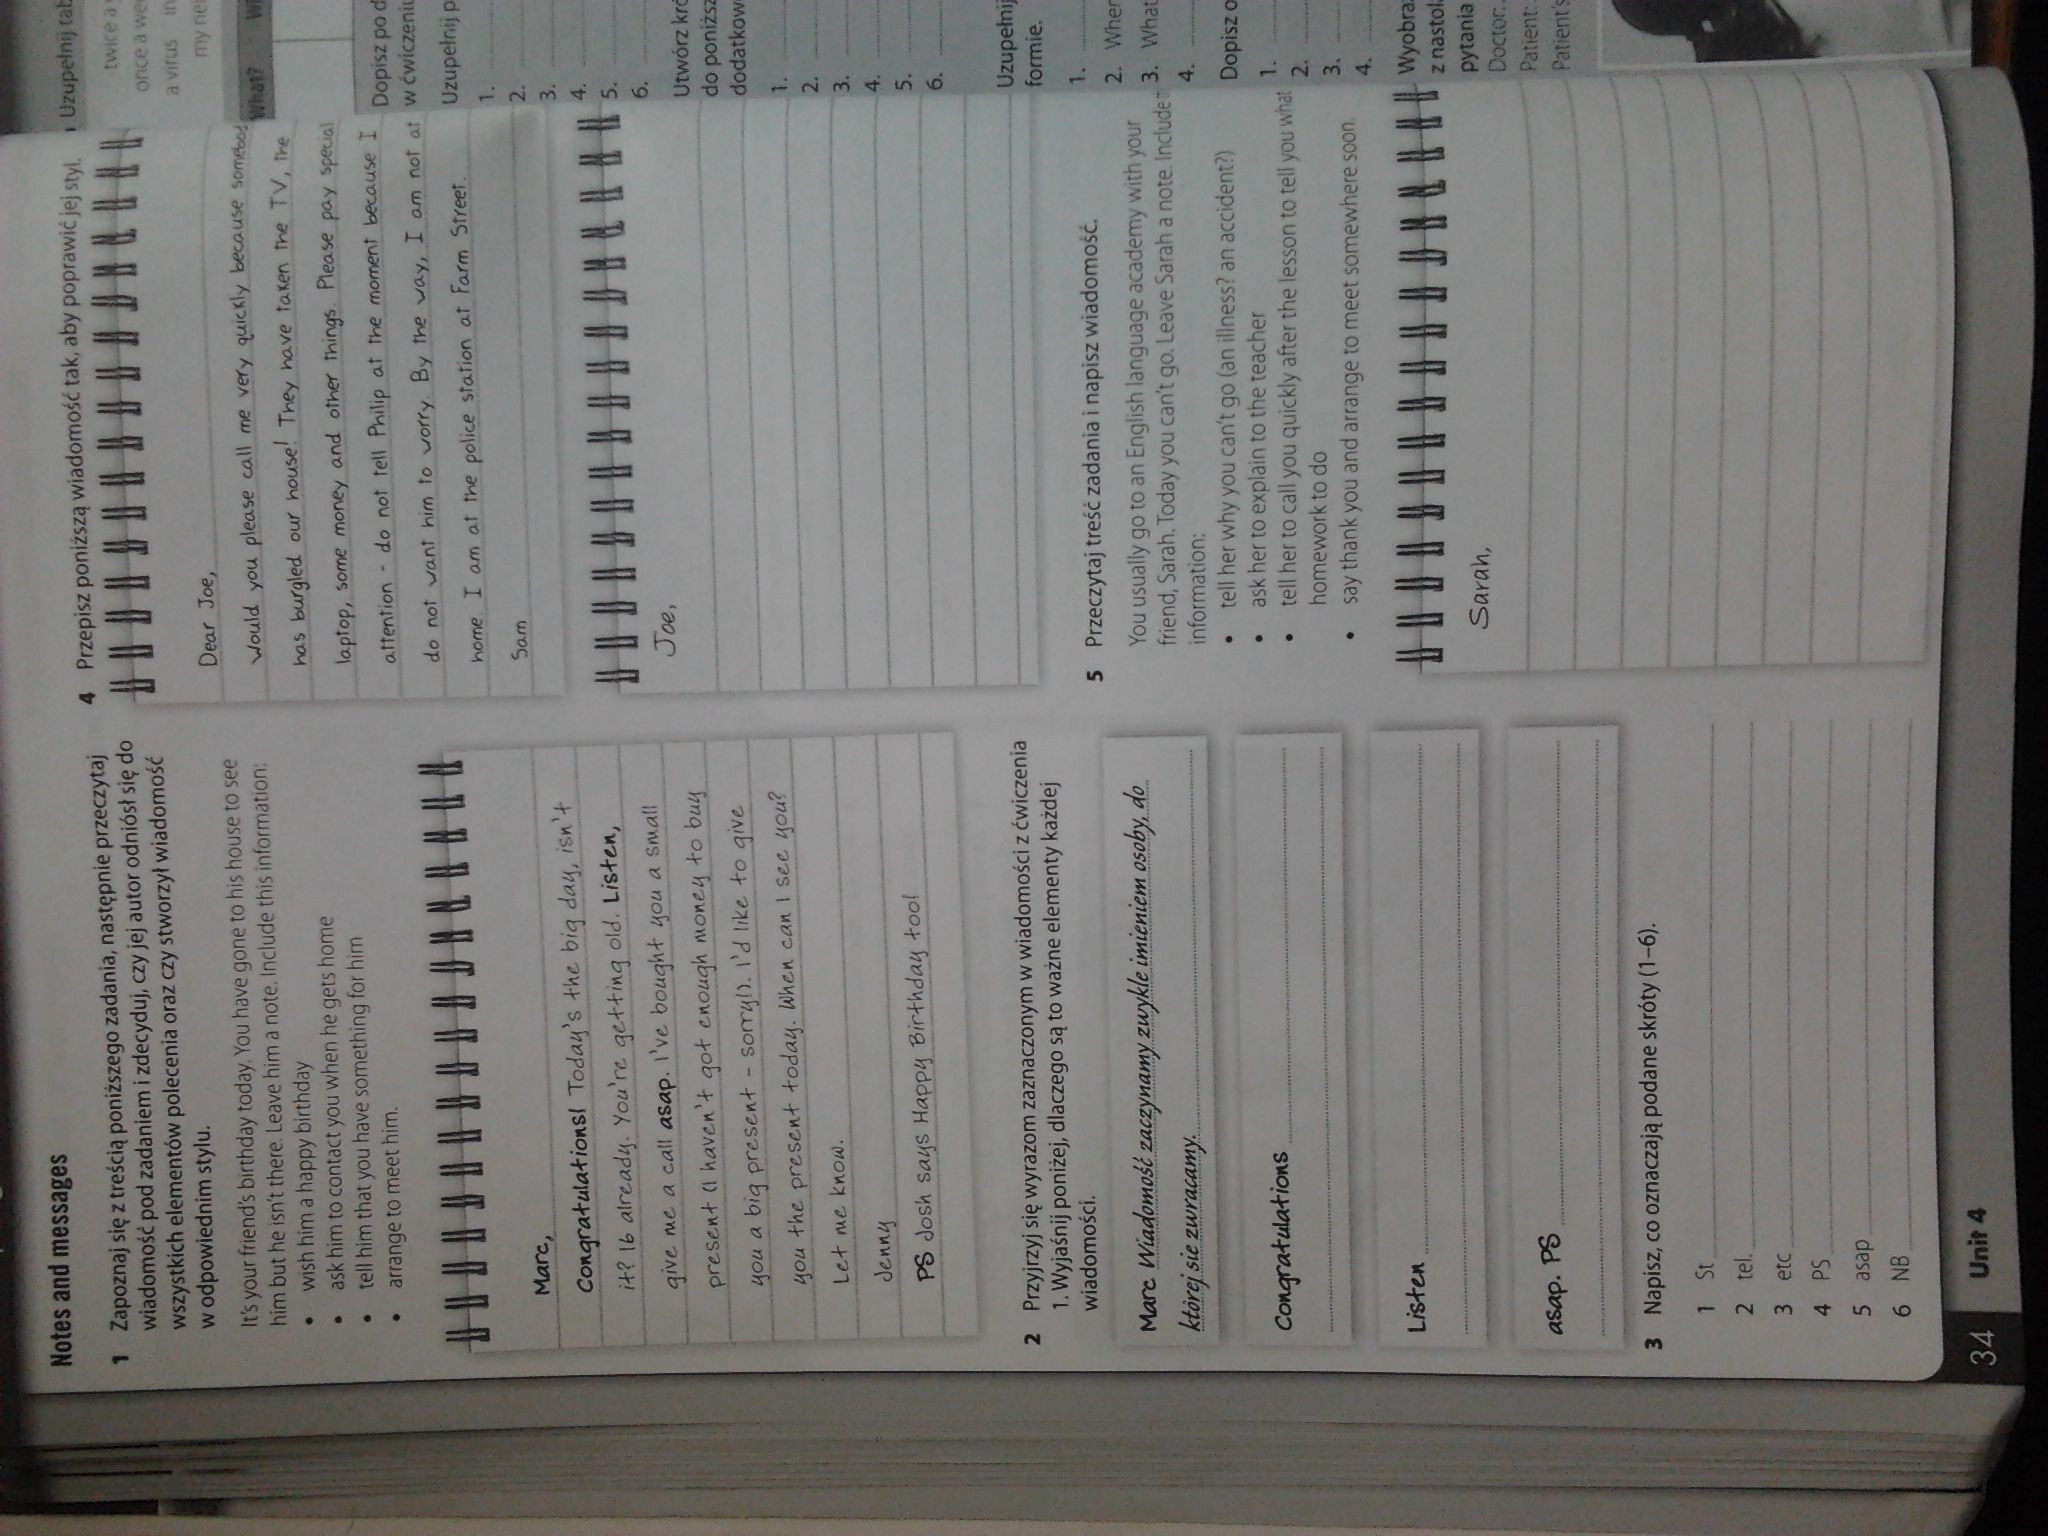 Notes and messages
1 Zapoznaj się z treścią poniższego zadania, następnie przeczytaj
wiadomość pod zadaniem i zdecyduj, czy jej autor odniósł się do
wszystkich elementów polecenia oraz czy stworzył wiadomość
w odpowiednim stylu.
It's your friend's birthday today. You have gone to his house to see
him but he isn't there. Leave him a note. Include this information:
• wish him a happy birthday
• ask him to contact you when he gets home
• tell him that you have something for him
• arrange to meet him.
Marc,
Congratulations! Today's the big day, isn't
it? 16 already. You're getting old. Listen,
give me a call asap. I've bought you a small
present (I haven't got enough money to buy
you a big present – sorry!). I'd like to give
you the present today. When can I see you?
Let me know.
Jenny
PS Josh says Happy Birthday too!
2 Przyjrzyj się wyrazom zaznaczonym w wiadomości z ćwiczenia
1. Wyjaśnij poniżej, dlaczego są to ważne elementy każdej
wiadomości.
Marc Wiadomość zaczynamy zwykle imieniem osoby, do
której się zwracamy.
Congratulations
Listen
asap. PS
3 Napisz, co oznaczają podane skróty (1–6).
1 St
2 tel.
3 etc
4 PS
5 asap
6 NB
34 Unit 4
4 Przepisz poniższą wiadomość tak, aby poprawić jej styl.
Dear Joe,
Would you please call me very quickly because somebod
has burgled our house! They have taken the TV, the
laptop, some money and other things. Please pay special
attention – do not tell Philip at the moment because I
do not want him to worry. By the way, I am not at
home. I am at the police station at Farm Street.
Sam
Joe,
5 Przeczytaj treść zadania i napisz wiadomość.
You usually go to an English language academy with your
friend, Sarah. Today you can't go. Leave Sarah a note. Include
information:
• tell her why you can't go (an illness? an accident?)
• ask her to explain to the teacher
• tell her to call you quickly after the lesson to tell you what
homework to do
• say thank you and arrange to meet somewhere soon.
Sarah,
Uzupełnij tab
twice a
once a we
a virus in
my ne
What?
Dopisz po d
w ćwiczeniu
Uzupełnij p
1.
2.
3.
4.
5.
6.
Utwórz kró
do poniższ
dodatkow
1.
2.
3.
4.
5.
6.
Uzupełnij
formie.
1.
2. When
3. What
4.
Dopisz o
1.
2.
3.
4.
Wyobraź
z nastol
pytania
Doctor:
Patient:
Patient's